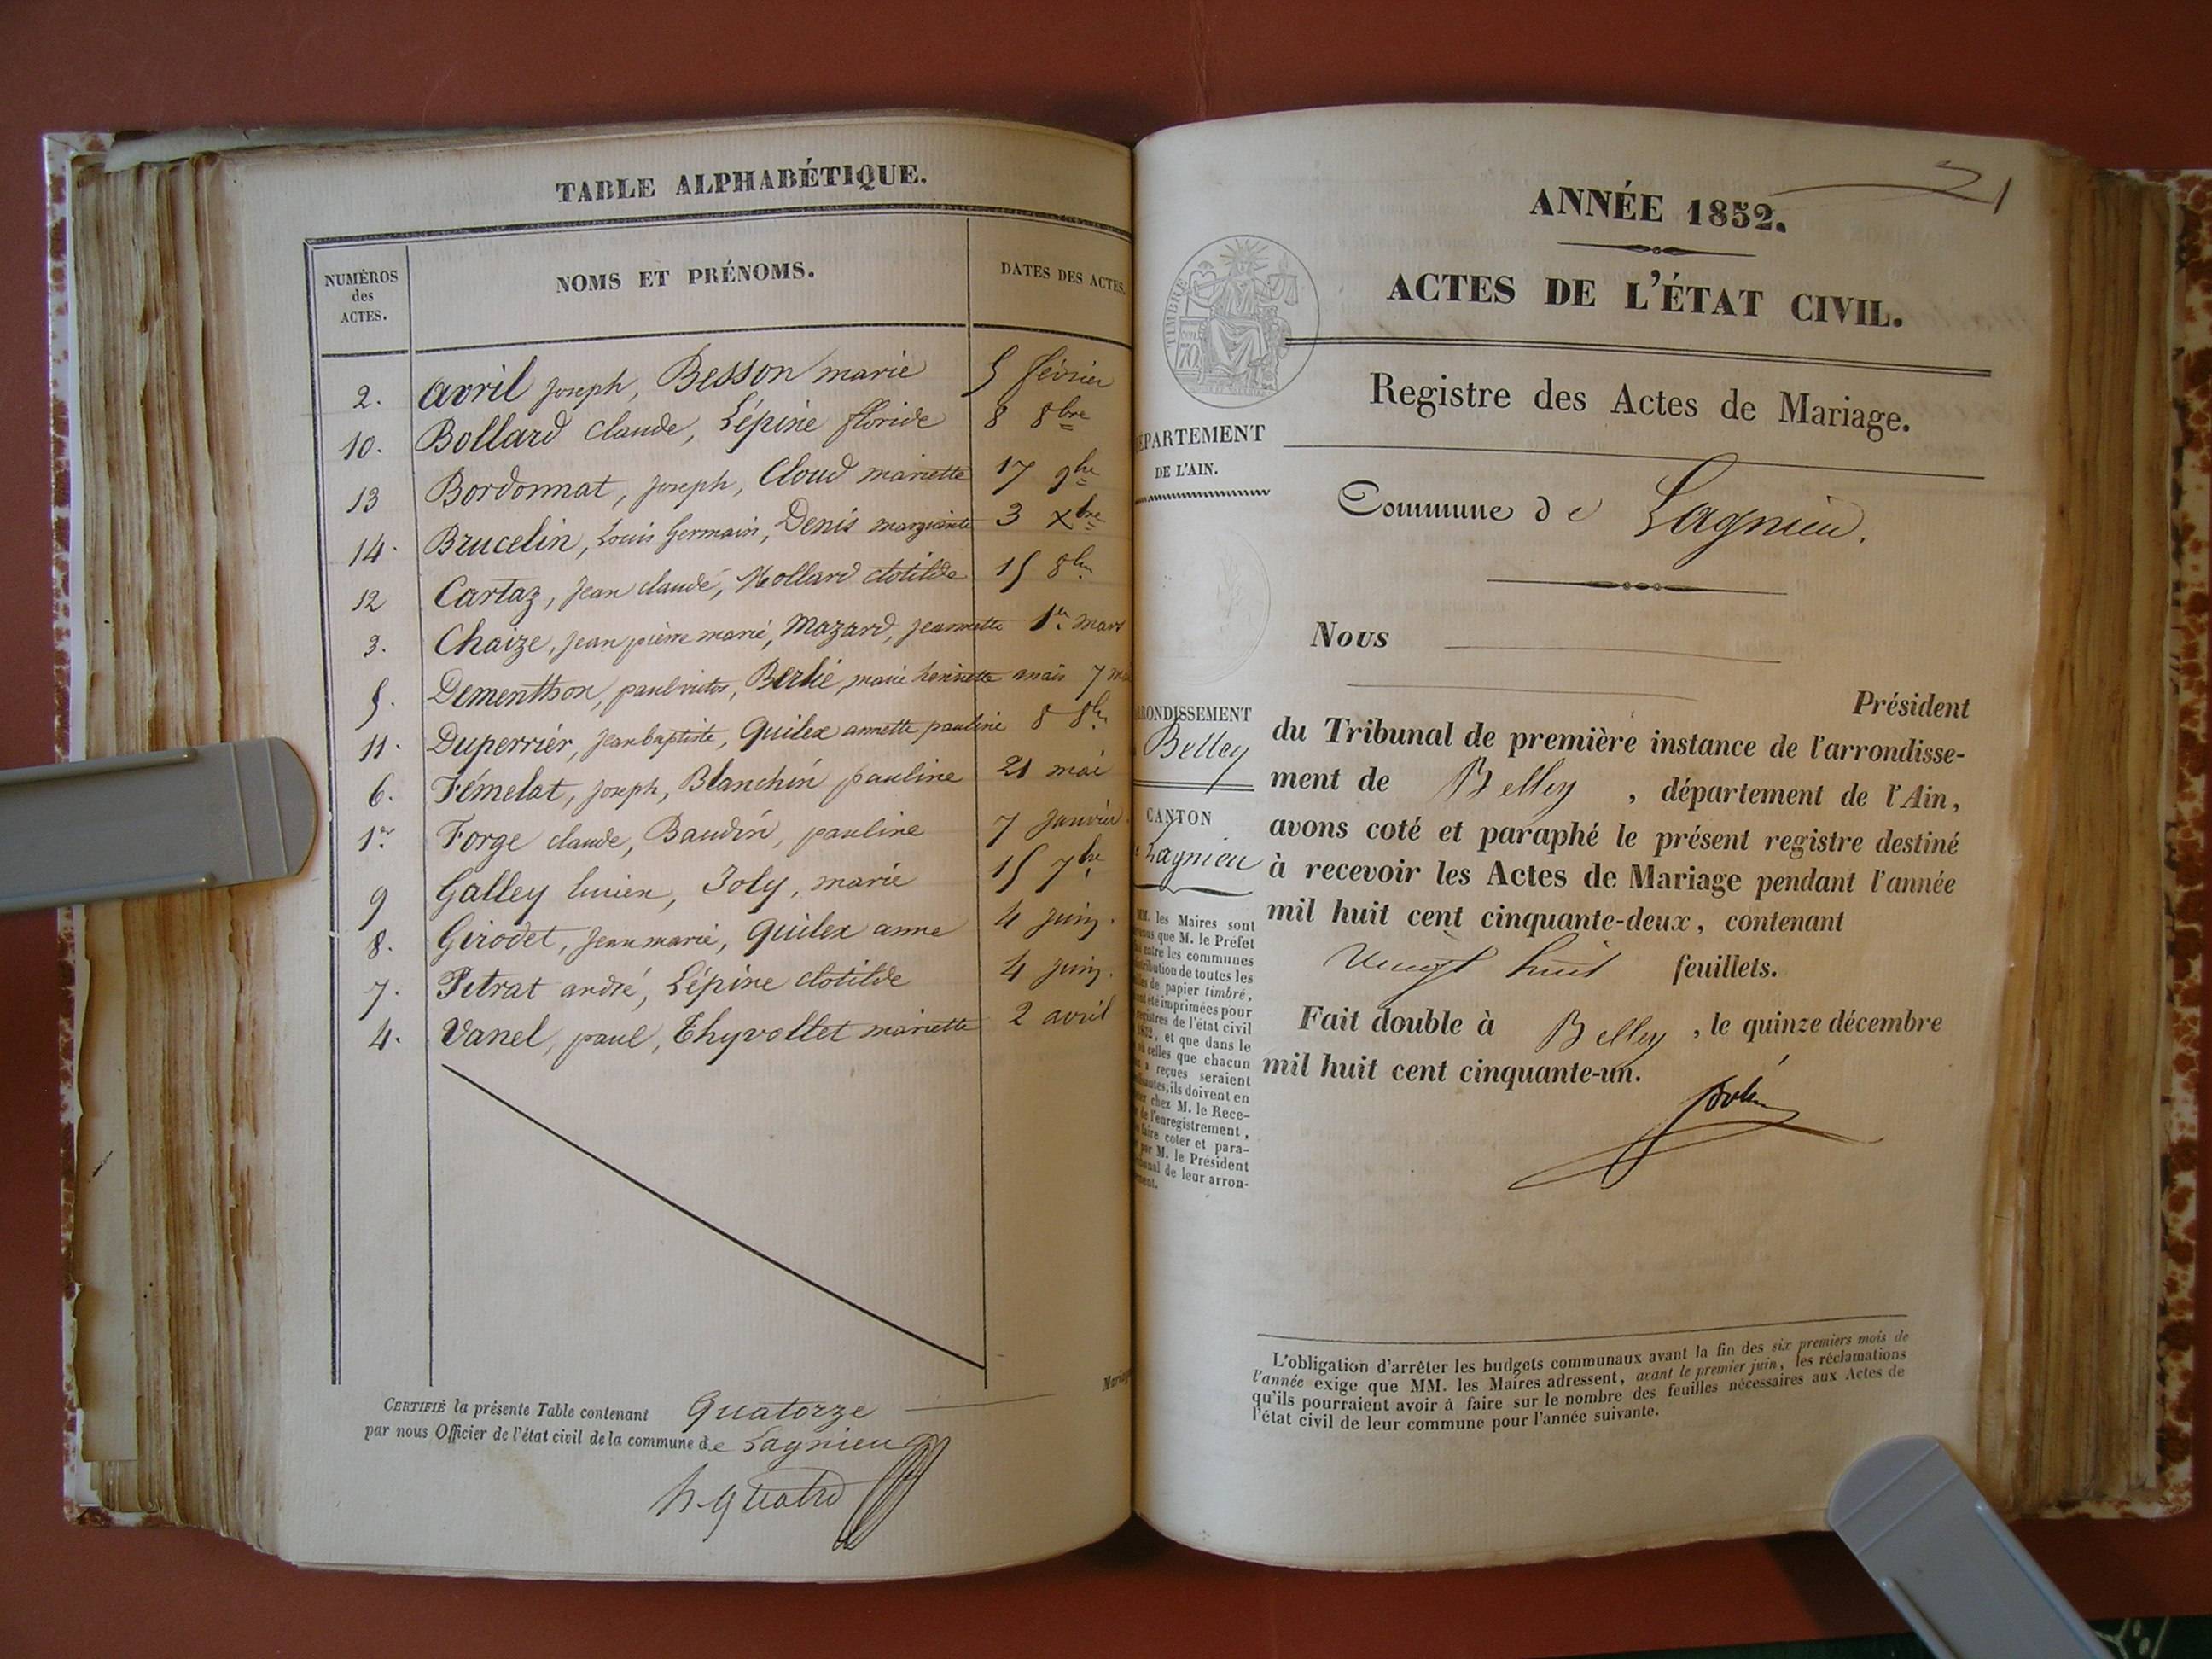 TABLE ALPHABÉTIQUE.
NUMÉROS
des
ACTES.
NOMS ET PRÉNOMS.
DATES DES ACTES.
2. avril joseph, Besson marie 5 février
10. Bollard claude, Lépine floride 8 8bre
13 Bordonnat, joseph, Cloud mariette 17 9bre
14. Brucelin, Louis germain, Denis marguerite 3 Xbre
12 Cartaz, jean claude, Mollard clotilde 15 8bre
3. Chaize, jean pierre marie, Mazard, jeannette 1er mars
5. Dementhon, paul victor, Berlié, marie henriette anaïs 7
11. Duperrier, jean baptiste, Quilex annette pauline 8 8bre
6. Fémelat, joseph, Blanchin pauline 21 mai
1er Forge claude, Baudin, pauline 7 janvier
9 Galley lucien, Joly, marie 15 7bre
8. Girodet, jean marie, Quilex anne 4 juin.
7. Petrat andré, Lépine clotilde 4 juin.
4. Vanel, paul, Thyvollet mariette 2 avril
CERTIFIÉ la présente Table contenant Quatorze
par nous Officier de l'état civil de la commune de Lagnieu
ANNÉE 1852.
21
ACTES DE L'ÉTAT CIVIL.
TIMBRE
70
Registre des Actes de Mariage.
DÉPARTEMENT
DE L'AIN.
Commune de Lagnieu.
Nous
Président
ARRONDISSEMENT
Belley
CANTON
Lagnieu
du Tribunal de première instance de l'arrondisse-
ment de Belley, département de l'Ain,
avons coté et paraphé le présent registre destiné
à recevoir les Actes de Mariage pendant l'année
mil huit cent cinquante-deux, contenant
Vingt huit feuillets.
Fait double à Belley, le quinze décembre
mil huit cent cinquante-un.
MM. les Maires sont
que M. le Préfet
entre les communes
de toutes les
de papier timbré,
été imprimées pour
de l'état civil
, et que dans le
celles que chacun
reçues seraient
ils doivent en
chez M. le Rece-
de l'enregistrement,
faire coter et para-
par M. le Président
de leur arron-
L'obligation d'arrêter les budgets communaux avant la fin des six premiers mois de
l'année exige que MM. les Maires adressent, avant le premier juin, les réclamations
qu'ils pourraient avoir à faire sur le nombre des feuilles nécessaires aux Actes de
l'état civil de leur commune pour l'année suivante.